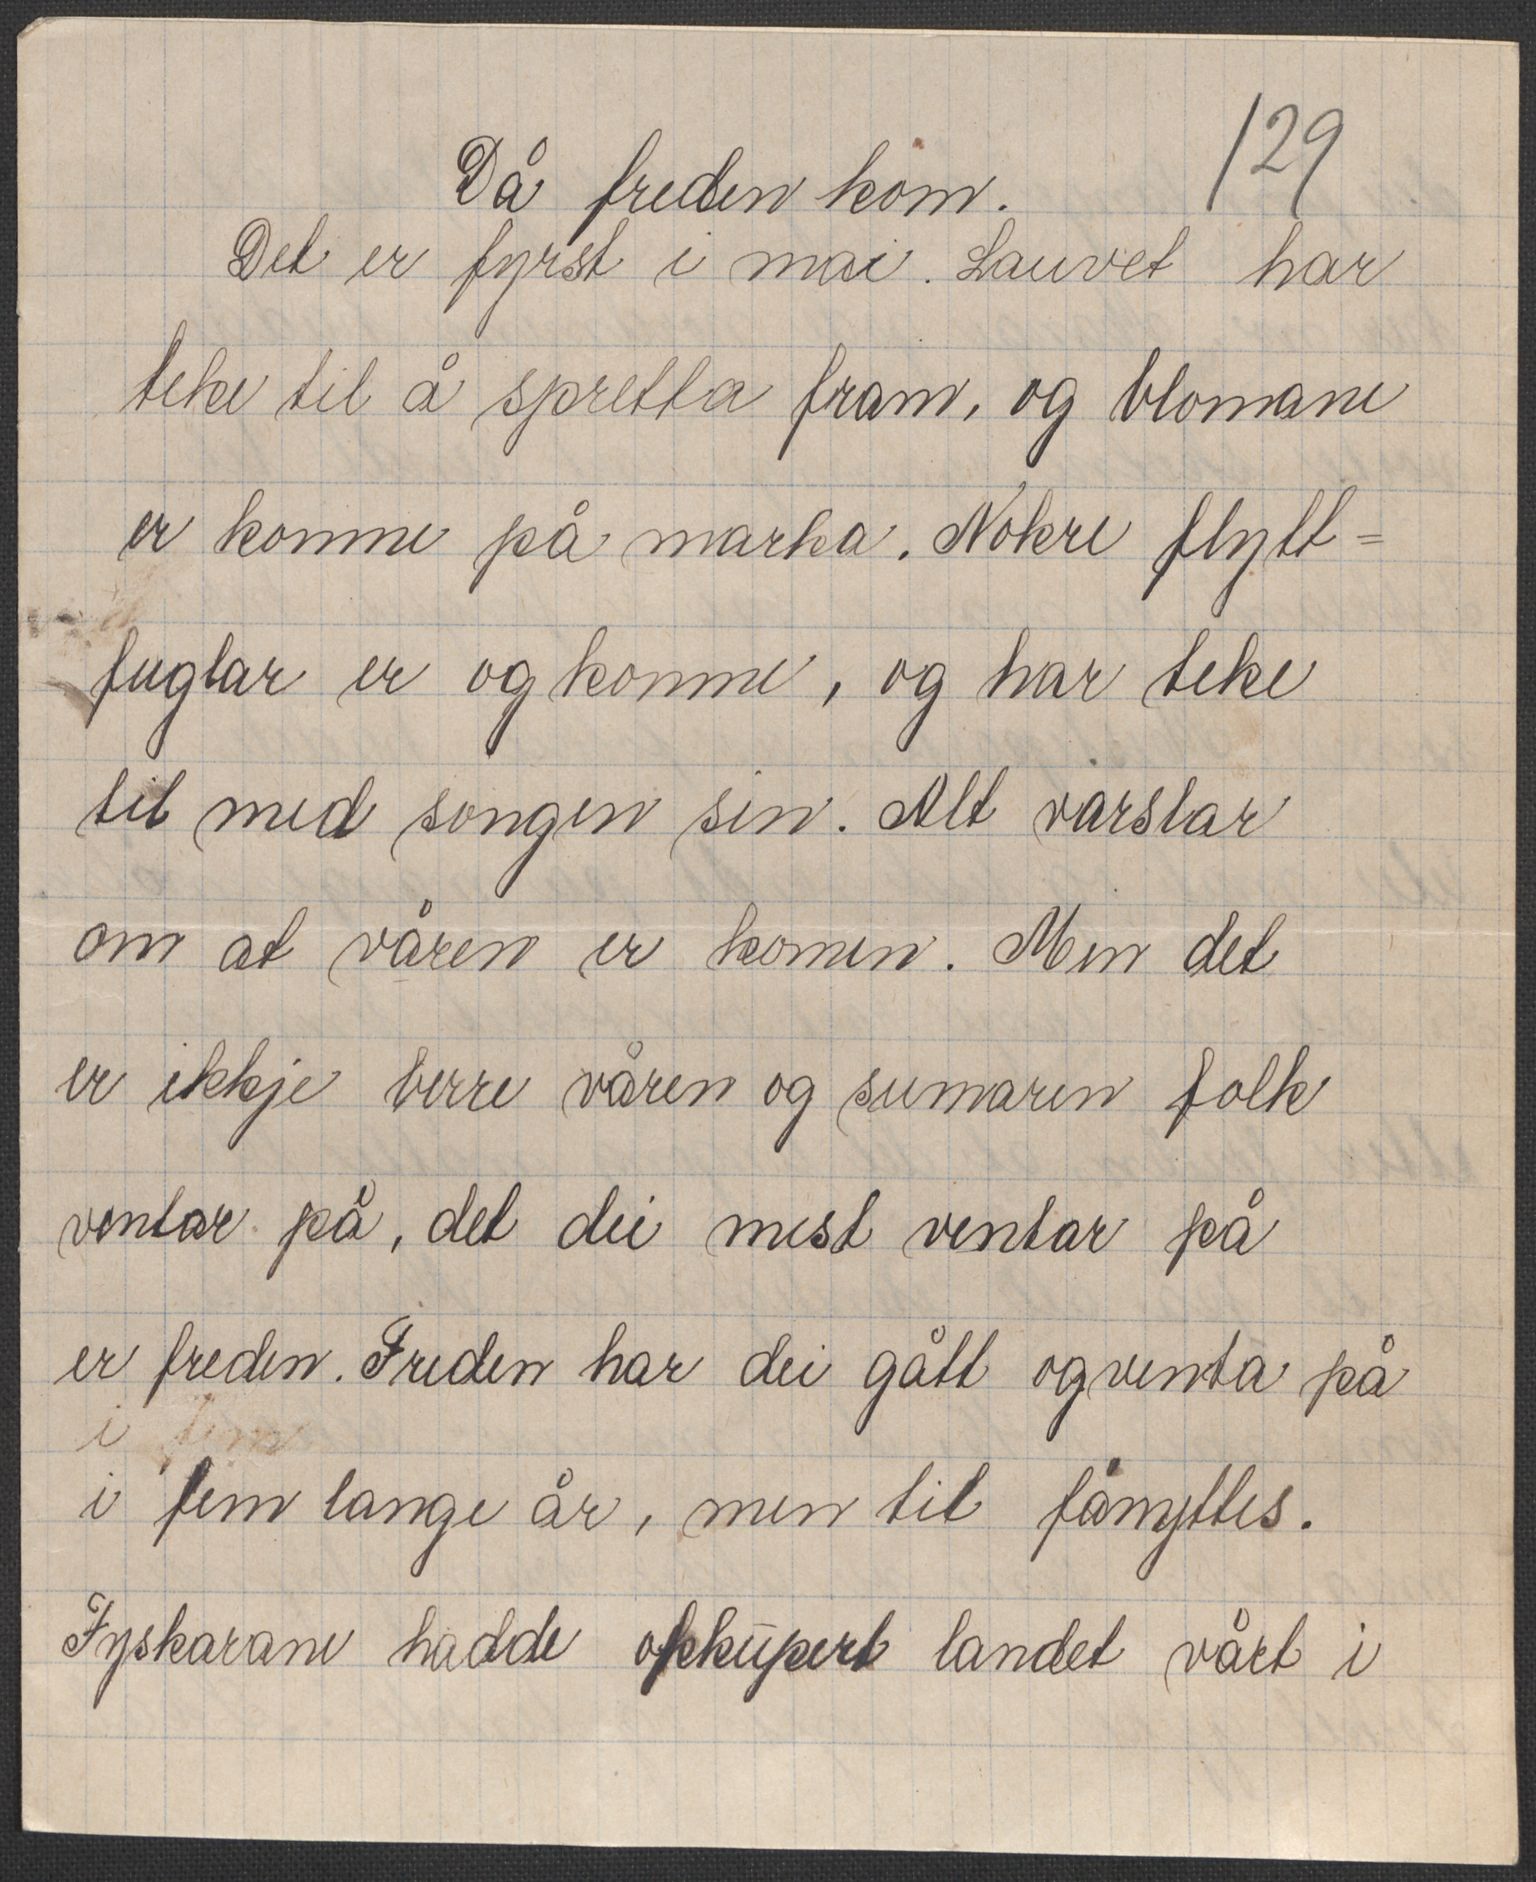 129
Då freden kom.
Det er fyrst i mai. Lauvet har
teke til å spretta fram, og blomane
er komne på marka. Nokre flytt=
fuglar er og komne, og har teke
til med songen sin. Alt varslar
om at våren er komen. Men det
er ikkje berre våren og sumaren folk
ventar på, det dei mest ventar på
er freden. Freden har dei gått og venta på
i fem
i fem lange år, men til fånyttes.
Tyskarane hadde okkupert landet vårt i